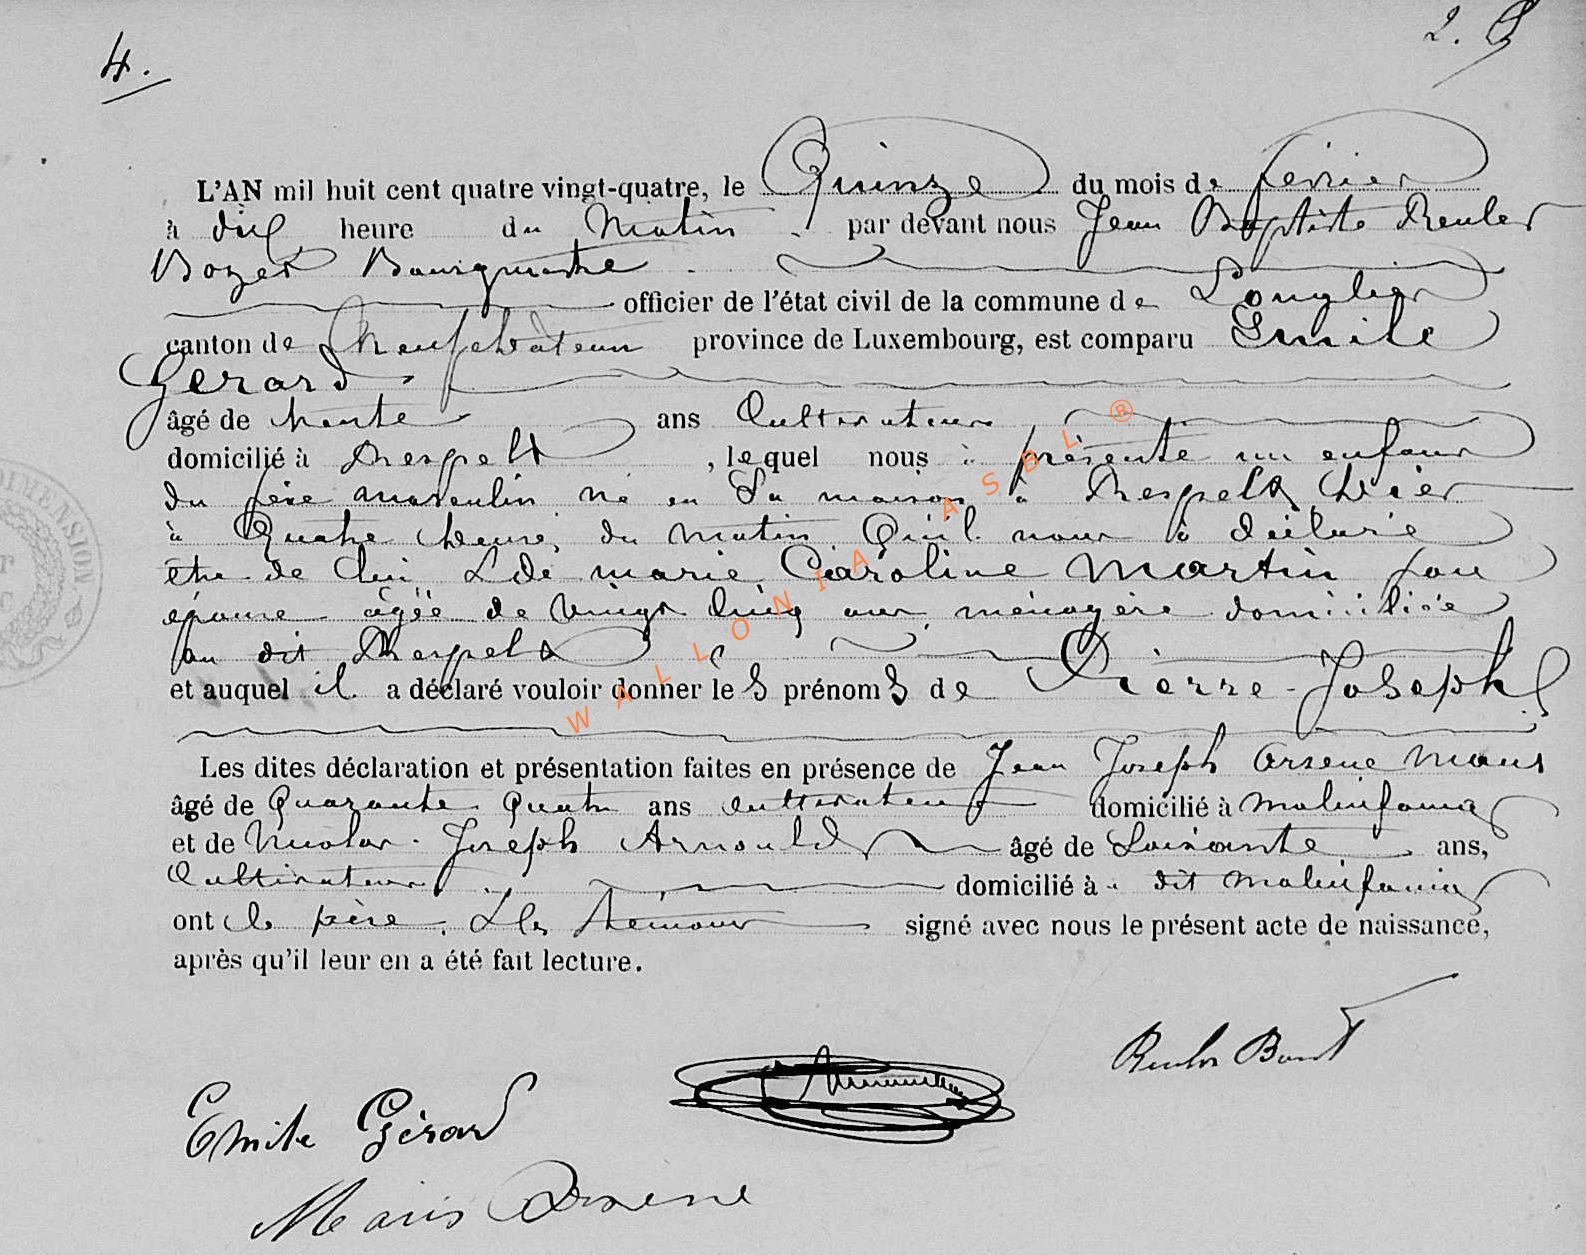 4.
2.
L'AN mil huit cent quatre vingt-quatre, le Quinze du mois de février
à dix heure du Matin par devant nous Jean Baptiste Reuler
Bourgmestre
officier de l'état civil de la commune de Longlier
canton de Neufchâteau province de Luxembourg, est comparu Emile
Gerard
âgé de trente ans Cultivateur
domicilié à Respelt, lequel nous a présenté un enfant
du sexe masculin né en Sa maison à Respelt hier
à Quatre heures du matin Qu'il nous a déclaré
être de lui & de marie Caroline Martin son
épouse âgée de vingt cinq ans, ménagère domiciliée
au dit Respelt
et auquel il a déclaré vouloir donner les prénoms de Pierre-Joseph
Les dites déclaration et présentation faites en présence de Jean Joseph Arsene Maus
âgé de Quarante Quatre ans cultivateur domicilié à malinfaing
et de Nicolas Joseph Arnould âgé de Soixante ans,
Cultivateur domicilié à dit malinfaing
ont le père & les témoins signé avec nous le présent acte de naissance,
après qu'il leur en a été fait lecture.
Emile Gérard
Arsène
WALLONIA ASBL ®